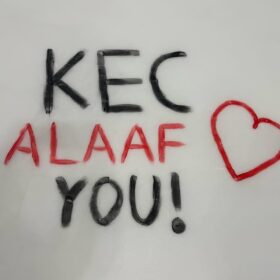 KEC
ALAAF
YOU!